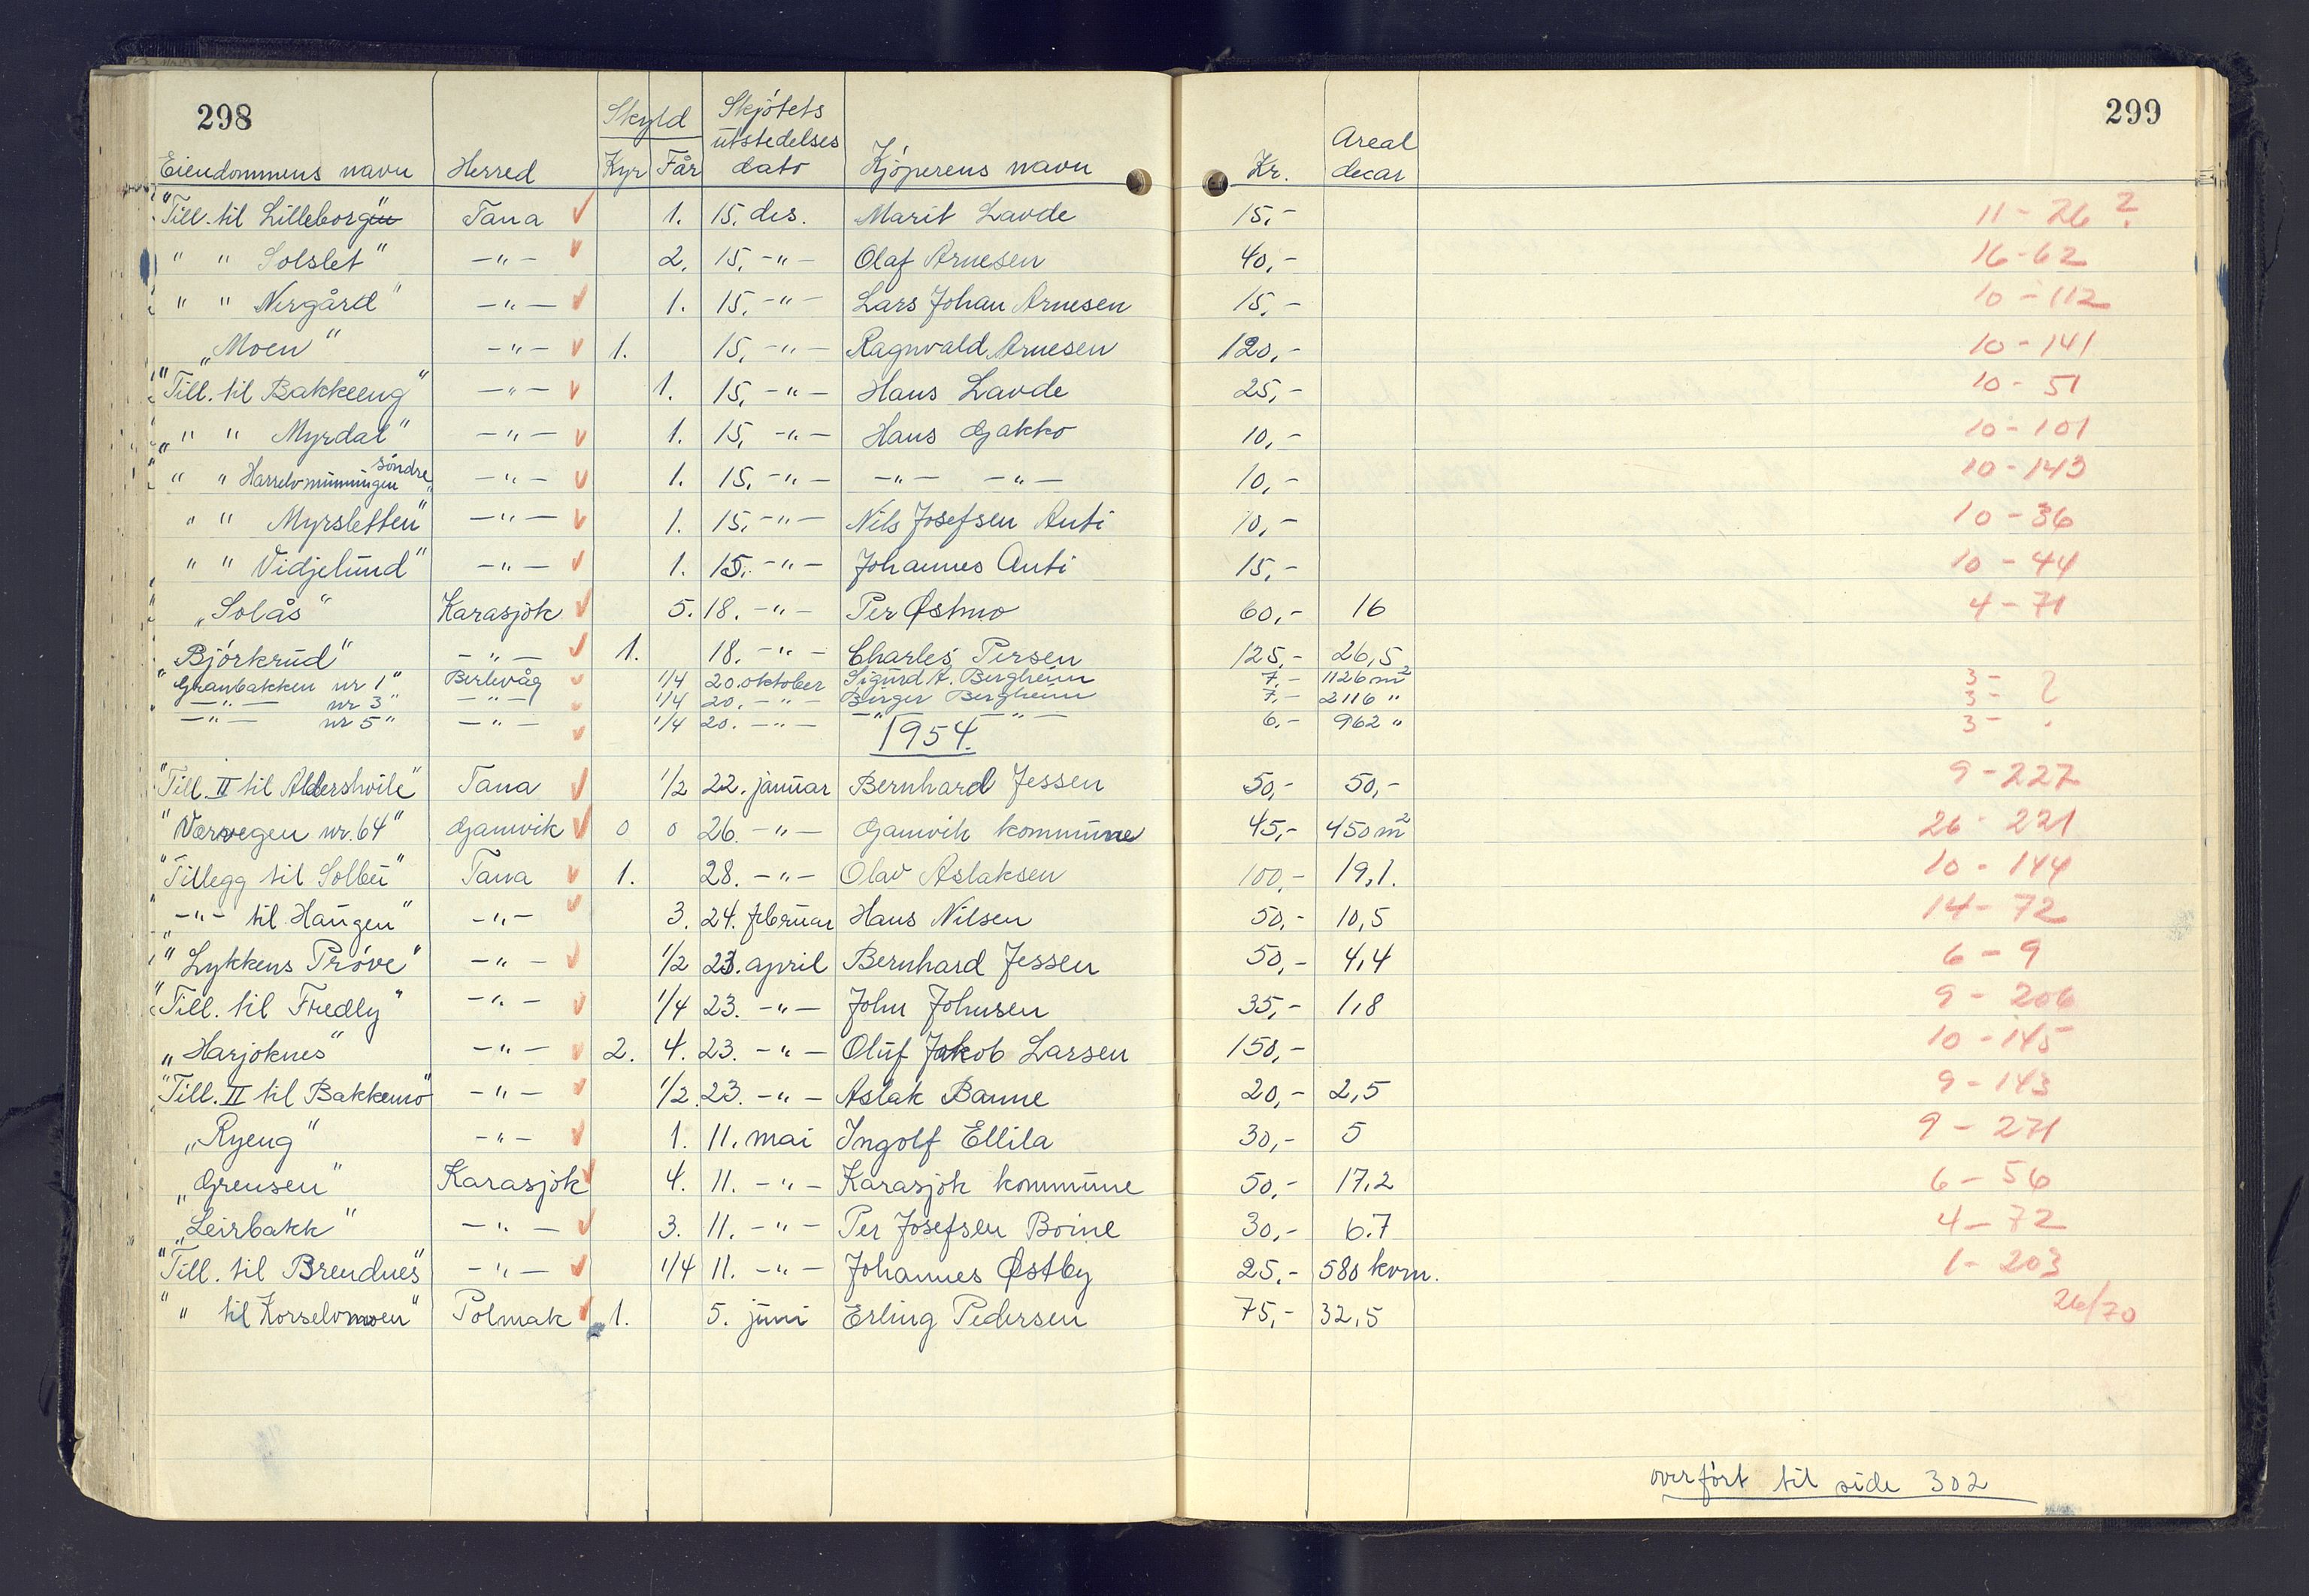 298 299
Skyld Skjötets utstedelses dato Areal decar
Eiendommens navn Herred Kyr Får Kjöperens navn Kr.
"Till. til Lilleborg" Tana 1. 15. des. Marit Lavde 15,- 11-26 ?
" " Solslet" -"- 2. 15. -"- Olaf Arnesen 40,- 16-62
" " Nergård" -"- 1. 15. -"- Lars Johan Arnesen 15,- 10-112
"Moen" -"- 1. 15. -"- Ragnvald Arnesen 120,- 10-141
"Till. til Bakkeeng" -"- 1. 15. -"- Hans Lavde 25,- 10-51
" " Myrdal" -"- 1. 15. -"- Hans Gakko 10,- 10-101
" " Harrelvmunningen söndre" -"- 1. 15. -"- -"- -"- 10,- 10-143
" " Myrsletten" -"- 1. 15. -"- Nils Josefsen Anti 10,- 10-36
" " Vidjelund" -"- 1. 15. -"- Johannes Anti 15,- 10-44
"Solås" Karasjok 5. 18. -"- Per Østmo 60,- 16 4-71
"Björkrud" -"- 1. 18. -"- Charles Persen 125,- 26,5
"Granbakken nr 1" Berlevåg 1/4 20. oktober Sigurd A. Bergheim 7,- 1126 m2 3- ?
-"- nr 3" -"- 1/4 20. -"- Birger Bergheim 7,- 2116 " 3-
-"- nr 5" -"- 1/4 20. -"- -"- -"- 6,- 962 " 3-
1954.
"Till. II til Aldershvile" Tana 1/2 22. januar Bernhard Jessen 50,- 50,- 9-227
"Værvegen nr. 64" Gamvik 0 0 26. -"- Gamvik kommune 45,- 450 m2 26-221
"Tillegg til Solbu" Tana 1. 28. -"- Olav Aslaksen 100,- 19,1. 10-144
"-"- til Haugen" -"- 3. 24. februar Hans Nilsen 50,- 10,5 14-72
"Lykkens Pröve" -"- 1/2 23. april Bernhard Jessen 50,- 4,4 6-9
"Till. til Fredly" -"- 1/4 23. -"- John Johnsen 35,- 1,8 9-206
"Harjoknes" -"- 2. 4. 23. -"- Oluf Jakob Larsen 150,- 10-145
"Till. II til Bakkemo" -"- 1/2. 23. -"- Aslak Banne 20,- 2,5 9-143
"Ryeng" -"- 1. 11. mai Ingolf Ellila 30,- 5 9-271
"Grensen" Karasjok 4. 11. -"- Karasjok kommune 50,- 17,2 6-56
"Leirbakk" -"- 3. 11. -"- Per Josefsen Boine 30,- 6.7 4-72
"Till. til Brendnes" -"- 1/4 11. -"- Johannes Østby 25,- 580 kvm. 1-203
" " til Korselvmoen" Polmak 1. 5. juni Erling Pedersen 75,- 32,5 26/70
overfört til side 302